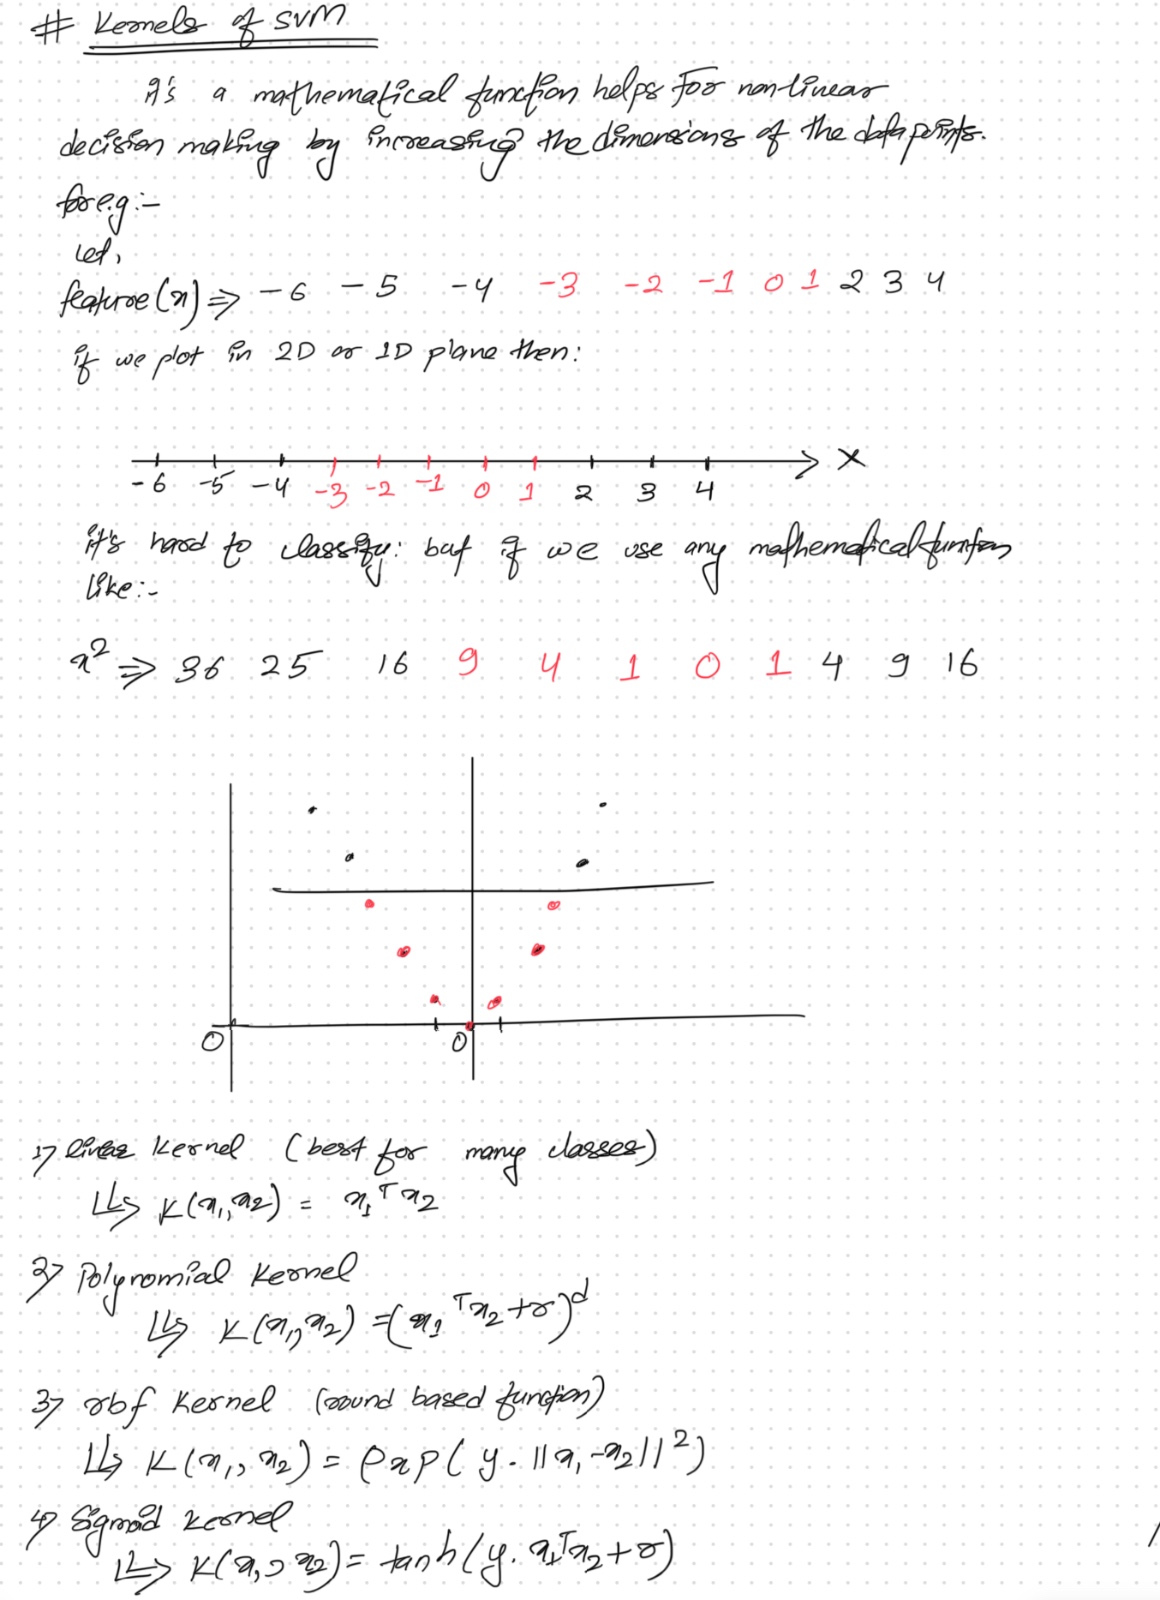 # Kernels of SVM
It's a mathematical function helps for non-linear
decision making by increasing the dimensions of the data points.
for e.g :-
let,
feature (x) ⇒ -6 -5 -4 -3 -2 -1 0 1 2 3 4
if we plot in 2D or 1D plane then:
X
-6 -5 -4 -3 -2 -1 0 1 2 3 4
it's hard to classify: but if we use any mathematical function
like :-
x² ⇒ 36 25 16 9 4 1 0 1 4 9 16
0 0
1> linear Kernel (best for many classes)
↳ K(x₁, x₂) = x₁ᵀx₂
2> Polynomial Kernel
↳ K(x₁, x₂) = (x₁ᵀx₂ + r)ᵈ
3> rbf Kernel (round based function)
↳ K(x₁, x₂) = exp( y. ||x₁-x₂||²)
4> Sigmoid Kernel
↳ K(x₁, x₂) = tanh(y. x₁ᵀx₂ + r)